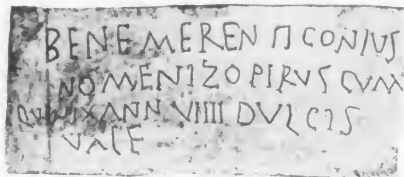 BENEMERENTI CONIUS
NOMENIZOPIRVS CVM
VIXANN VIIII DVLCIS
VALE